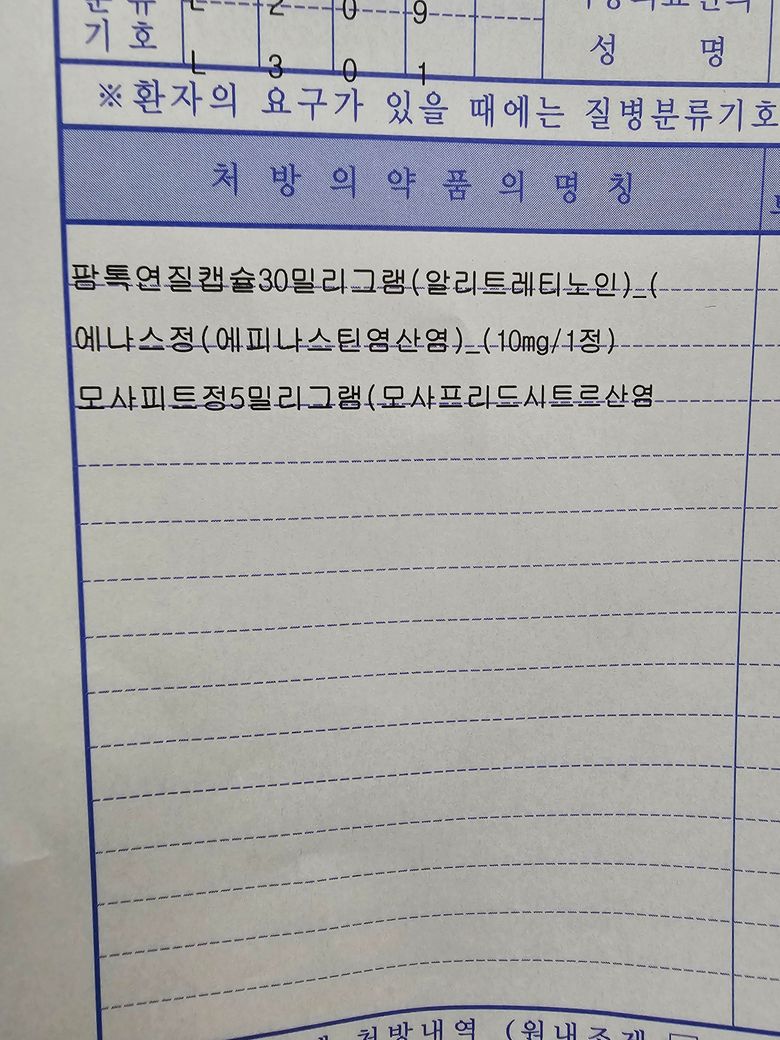 분 류 L 2 0 9
기 호 L 3 0 1
성 명
※환자의 요구가 있을 때에는 질병분류기호
처 방 의 약 품 의 명 칭
팜톡연질캡슐30밀리그램(알리트레티노인)_(
에나스정(에피나스틴염산염)_(10mg/1정)
모사피트정5밀리그램(모사프리드시트르산염
처방내역 (원내조제